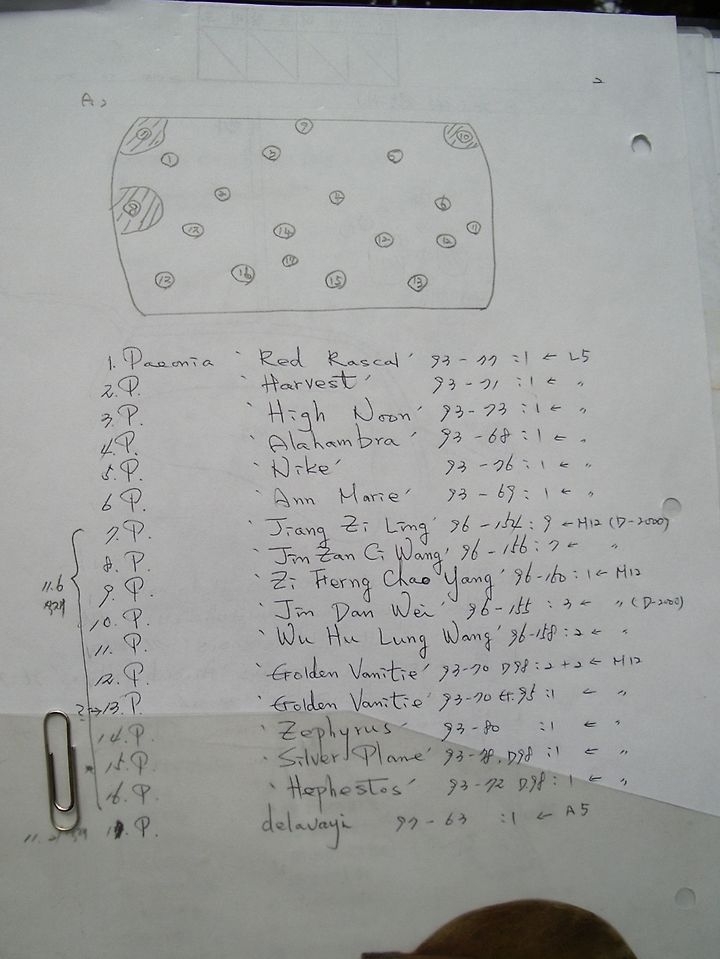 2
A2
9 7 10
1 3 5
2 4 6
8 12 14 12 12 11
17
12 16 15 13
1. Paeonia 'Red Rascal' 93-77 :1 ← L5
2. P. 'Harvest' 93-71 :1 ← 〃
3. P. 'High Noon' 93-73 :1 ← 〃
4. P. 'Alahambra' 93-68 :1 ← 〃
5. P. 'Nike' 93-76 :1 ← 〃
6 P. 'Ann Marie' 93-69 :1 ← 〃
7. P. 'Jiang Zi Ling' 96-154 : 9 ← M12 (D-2000)
8. P. 'Jin Zan Ci Wang' 96-156 : 7 ← 〃
11.6
9. P. 'Zi Herng Chao Yang' 96-160 : 1 ← M12
10. P. 'Jin Dan Wei' 96-155 : 3 ← 〃 (D-2000)
11. P. 'Wu Hu Lung Wang' 96-158 : 2 ← 〃
12. P. 'Golden Vanitie' 93-70 D98 : 2+2 ← M12
2→13. P. 'Golden Vanitie' 93-70 Gr. 95 :1 ← 〃
14. P. 'Zephyrus' 93-80 :1 ← 〃
15. P. 'Silver Plane' 93-78. D98 :1 ← 〃
16. P. 'Hephestos' 93-72 D98 : 1 ← 〃
17. P. delavayi 97-63 :1 ← A5